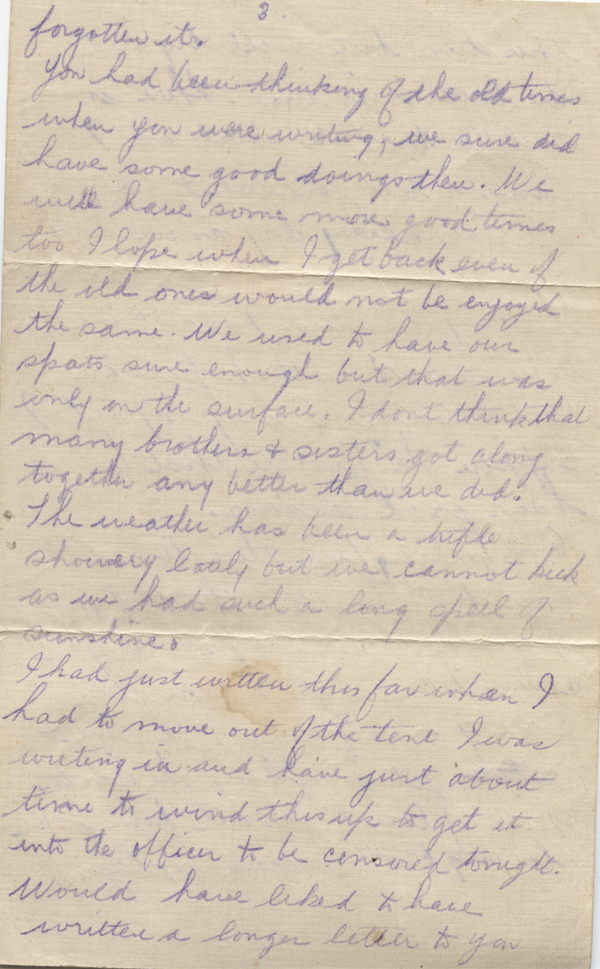 3.
forgotten it.
You had been thinking of the old times
when you were writing, we sure did
have some good doings then. We
will have some more good times
too I hope when I get back even if
the old ones would not be enjoyed
the same. We used to have our
spats sure enough but that was
only on the surface. I dont think that
many brothers & sisters got along
together any better than we did.
The weather has been a trifle
showery lately but we cannot kick
as we had such a long spell of
sunshine.
I had just written this far when I
had to move out of the tent I was
writing in and have just about
time to wind this up to get it
into the officer to be censored tonight.
Would have liked to have
written a longer letter to you